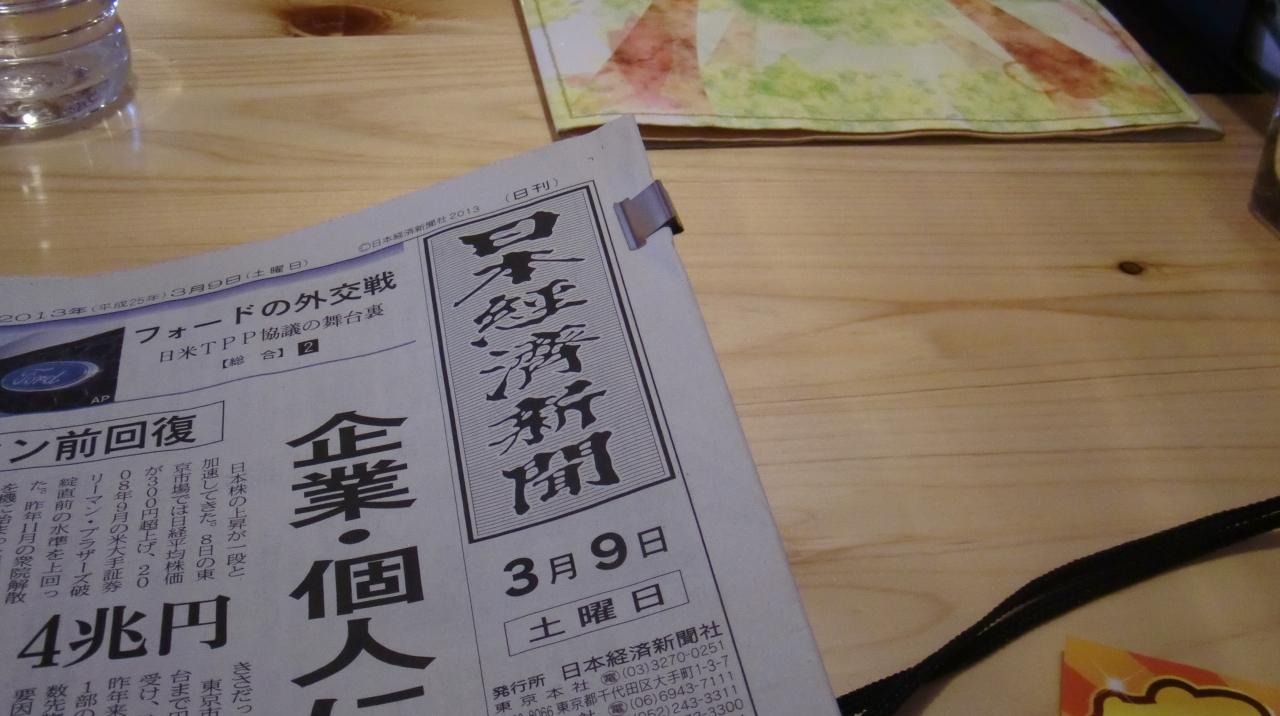 (日刊)
日本経済新聞
3月9日
土曜日
発行所 日本経済新聞社
東京本社 電(03)3270-0251
8066 東京都千代田区大手町1-3-7
社 電(06)6943-7111
(052)243-3311
3300
©日本経済新聞社 2013
2013年(平成25年)3月9日(土曜日)
フォードの外交戦
日米TPP協議の舞台裏
【総合】2
Ford
AP
企業・個人に
ン前回復
日本株の上昇が一段と
加速してきた。8日の東
京市場では日経平均株価
が300円超上げ、20
08年9月の米大手証券
リーマン・ブラザーズ破
綻直前の水準を上回っ
た。昨年11月の衆院解散
4兆円
きさだっ
東京市
台まで円
受け、
昨年来
1部の
数先物
要因